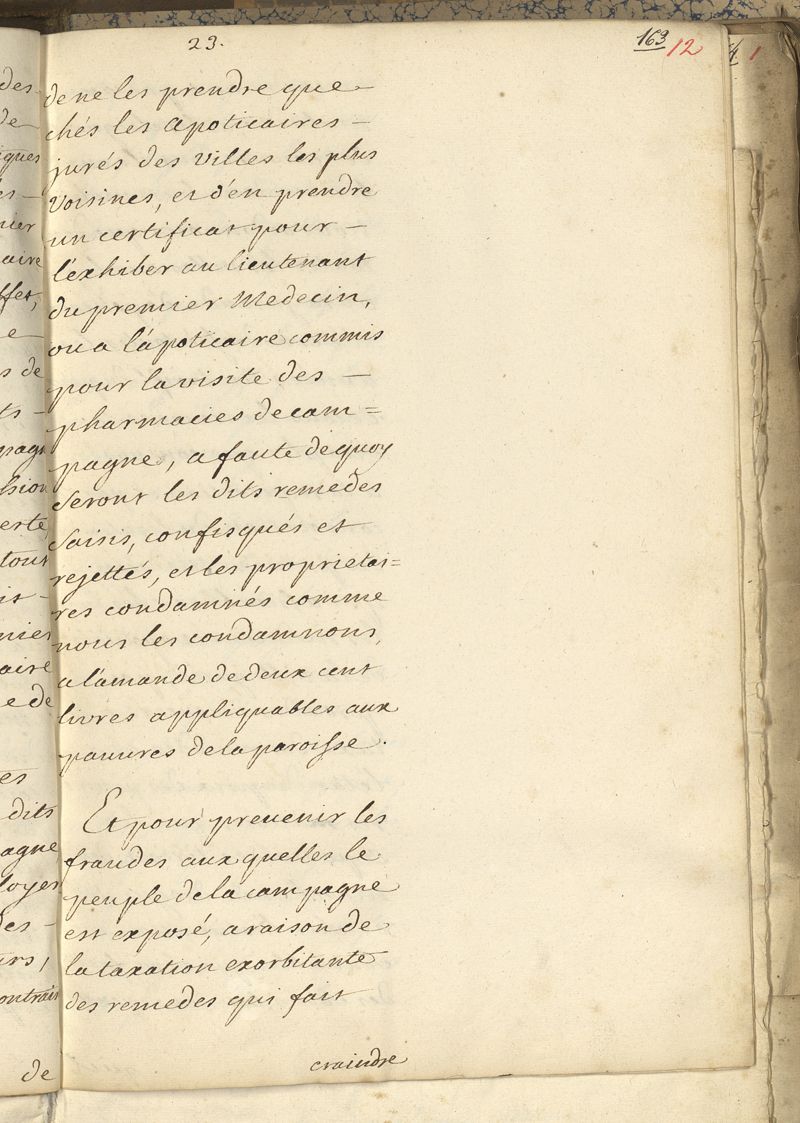 23.
163
12
de ne les prendre que
chés les apoticaires —
jurés des villes les plus
voisines, et d'en prendre
un certificat pour —
l'exhiber au lieutenant
du premier Medecin,
ou a l'apoticaire commis
pour la visite des —
pharmacies de cam=
pagne, a faute de quoy
seront les dits remedes
saisis, confisqués et
rejettés, et les proprietai=
res condamnés comme
nous les condamnons,
a l'amande de deux cent
livres appliquables aux
pauvres de la paroisse.
Et pour prevenir les
fraudes aux quelles le
peuple de la campagne
est exposé, a raison de
la taxation exorbitante
des remedes qui fait
craindre